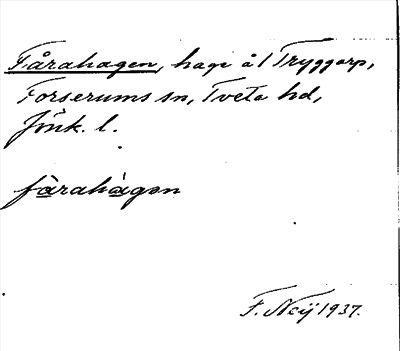 Fårahagen, hage å 1 Tryggarp,
Forserums sn, Tveta hd,
Jönk. l.
fårahàgən
F. Neij 1937.